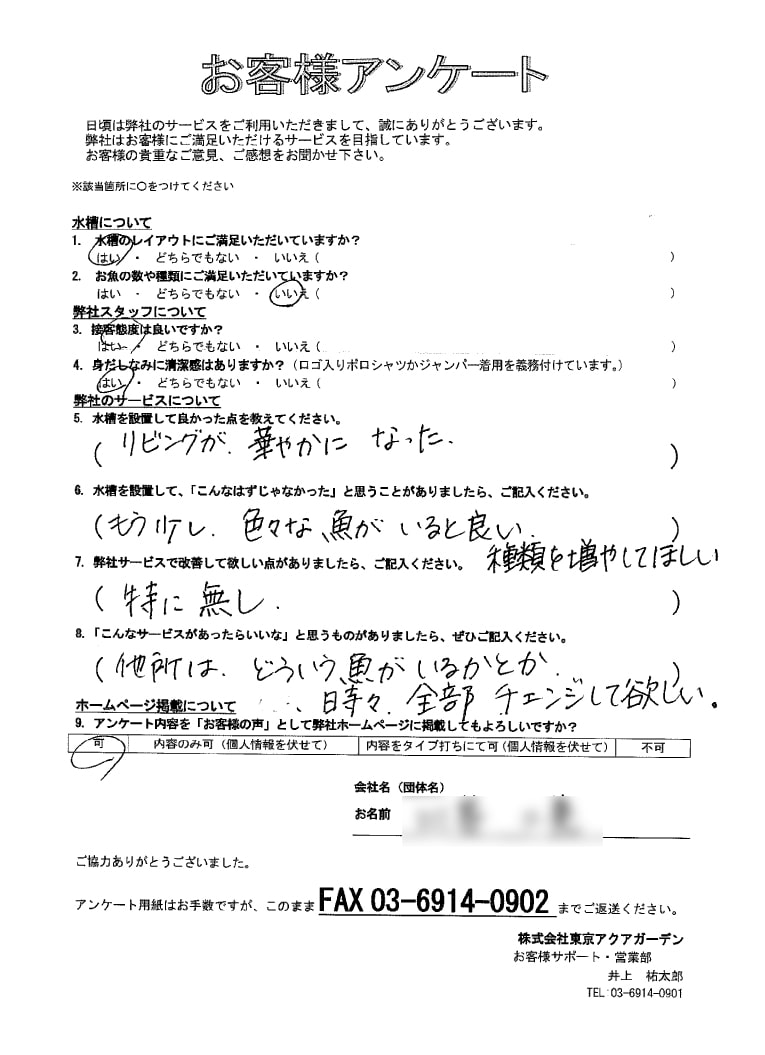 お客様アンケート
日頃は弊社のサービスをご利用いただきまして、誠にありがとうございます。
弊社はお客様にご満足いただけるサービスを目指しています。
お客様の貴重なご意見、ご感想をお聞かせ下さい。
※該当箇所に○をつけてください
水槽について
1. 水槽のレイアウトにご満足いただいていますか？
はい ・ どちらでもない ・ いいえ（ ）
2. お魚の数や種類にご満足いただいていますか？
はい ・ どちらでもない ・ いいえ（ ）
弊社スタッフについて
3. 接客態度は良いですか？
はい ・ どちらでもない ・ いいえ（ ）
4. 身だしなみに清潔感はありますか？（ロゴ入りポロシャツかジャンパー着用を義務付けています。）
はい ・ どちらでもない ・ いいえ（ ）
弊社のサービスについて
5. 水槽を設置して良かった点を教えてください。
（リビングが、華やかになった。）
6. 水槽を設置して、「こんなはずじゃなかった」と思うことがありましたら、ご記入ください。
（もう少し、色々な、魚がいると良い。）
種類を増やしてほしい
7. 弊社サービスで改善して欲しい点がありましたら、ご記入ください。
（特に無し。）
8. 「こんなサービスがあったらいいな」と思うものがありましたら、ぜひご記入ください。
（他所は、どういう魚がいるかとか、）
時々、全部チェンジして欲しい。
ホームページ掲載について
9. アンケート内容を「お客様の声」として弊社ホームページに掲載してもよろしいですか？
可 内容のみ可（個人情報を伏せて） 内容をタイプ打ちにて可（個人情報を伏せて） 不可
会社名（団体名）
お名前
ご協力ありがとうございました。
アンケート用紙はお手数ですが、このまま FAX 03-6914-0902 までご返送ください。
株式会社東京アクアガーデン
お客様サポート・営業部
井上 祐太郎
TEL:03-6914-0901